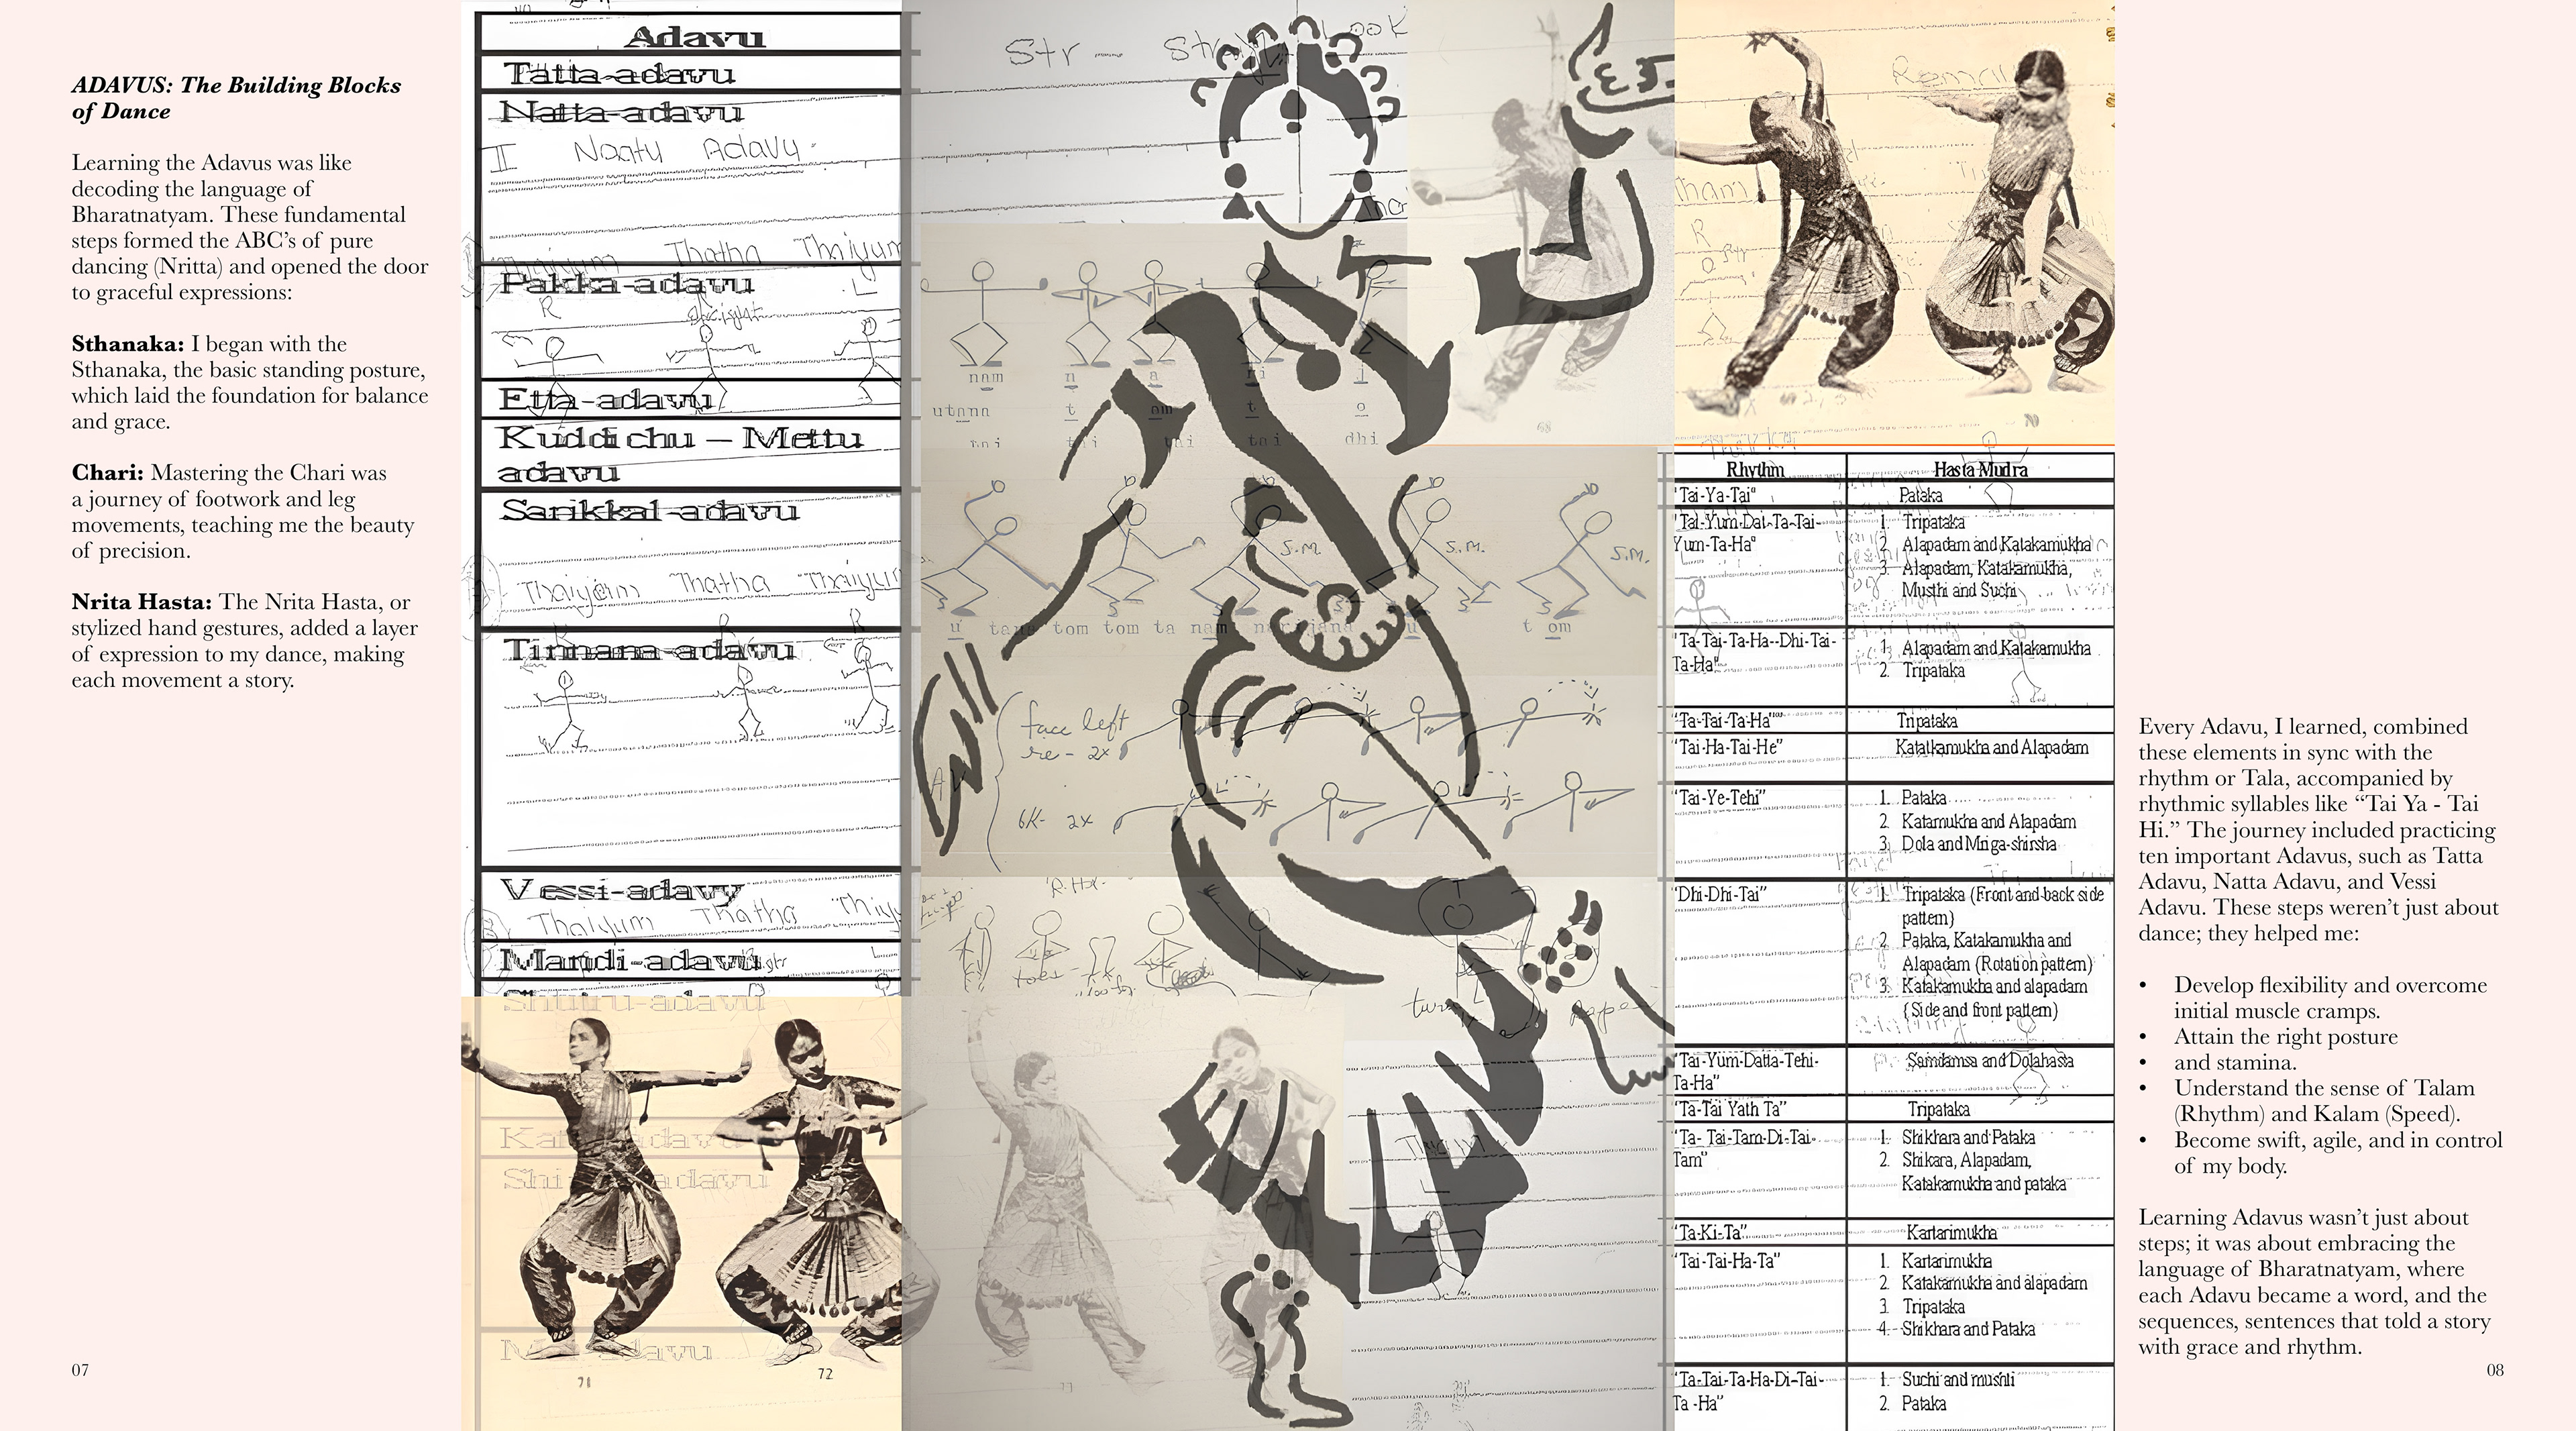 ADAVUS: The Building Blocks
of Dance
Learning the Adavus was like
decoding the language of
Bharatnatyam. These fundamental
steps formed the ABC’s of pure
dancing (Nritta) and opened the door
to graceful expressions:
Sthanaka: I began with the
Sthanaka, the basic standing posture,
which laid the foundation for balance
and grace.
Chari: Mastering the Chari was
a journey of footwork and leg
movements, teaching me the beauty
of precision.
Nrita Hasta: The Nrita Hasta, or
stylized hand gestures, added a layer
of expression to my dance, making
each movement a story.
07
Adavu
Tatta-adavu
Natta-adavu
II Naatu Adavu
Thatha Thaiyum
Pakka-adavu
R
L
Etta-adavu
Kuddichu – Mettu
adavu
Sarikkal-adavu
Thaiyum Thatha Thaiyum
Tinnana-adavu
Vessi-adavy
Thaiyum Thatha Thiy
Mandi-adavu
Shutru-adavu
71
72
Str — Straight Look
nam n a ri j
utana t om t o
tai tai tai tai dhi
S.M. S.M. S.M.
u tana tom tom ta nam na ri jana u t om
face left
re - 2x
6K- 2x
toes
turn
68
70
Rhythm Hasta Mudra
"Tai-Ya-Tai" Pataka
"Tai-Yum-Dat-Ta-Tai-
Yum-Ta-Ha"
1. Tripataka
2. Alapadam and Katakamukha
3. Alapadam, Katakamukha,
Musthi and Suchi
"Ta-Tai-Ta-Ha--Dhi-Tai-
Ta-Ha"
1. Alapadam and Katakamukha
2. Tripataka
"Ta-Tai-Ta-Ha" Tripataka
"Tai-Ha-Tai-He" Katatkamukha and Alapadam
"Tai-Ye-Tehi"
1. Pataka
2. Katamukha and Alapadam
3. Dola and Mriga-shirsha
"Dhi-Dhi-Tai"
1. Tripataka (Front and back side
pattern)
2. Pataka, Katakamukha and
Alapadam (Rotation pattern)
3. Katakamukha and alapadam
(Side and front pattern)
"Tai-Yum-Datta-Tehi-
Ta-Ha"
Samdamsa and Dolahasta
"Ta-Tai Yath Ta" Tripataka
"Ta- Tai-Tam-Di-Tai-
Tam"
1. Shikhara and Pataka
2. Shikara, Alapadam,
Katakamukha and pataka
"Ta-Ki-Ta" Kartarimukha
"Tai-Tai-Ha-Ta"
1. Kartarimukha
2. Katakamukha and alapadam
3. Tripataka
4. Shikhara and Pataka
"Ta-Tai-Ta-Ha-Di-Tai-
Ta -Ha"
1. Suchi and mushti
2. Pataka
Every Adavu, I learned, combined
these elements in sync with the
rhythm or Tala, accompanied by
rhythmic syllables like “Tai Ya - Tai
Hi.” The journey included practicing
ten important Adavus, such as Tatta
Adavu, Natta Adavu, and Vessi
Adavu. These steps weren’t just about
dance; they helped me:
• Develop flexibility and overcome
initial muscle cramps.
• Attain the right posture
• and stamina.
• Understand the sense of Talam
(Rhythm) and Kalam (Speed).
• Become swift, agile, and in control
of my body.
Learning Adavus wasn’t just about
steps; it was about embracing the
language of Bharatnatyam, where
each Adavu became a word, and the
sequences, sentences that told a story
with grace and rhythm.
08